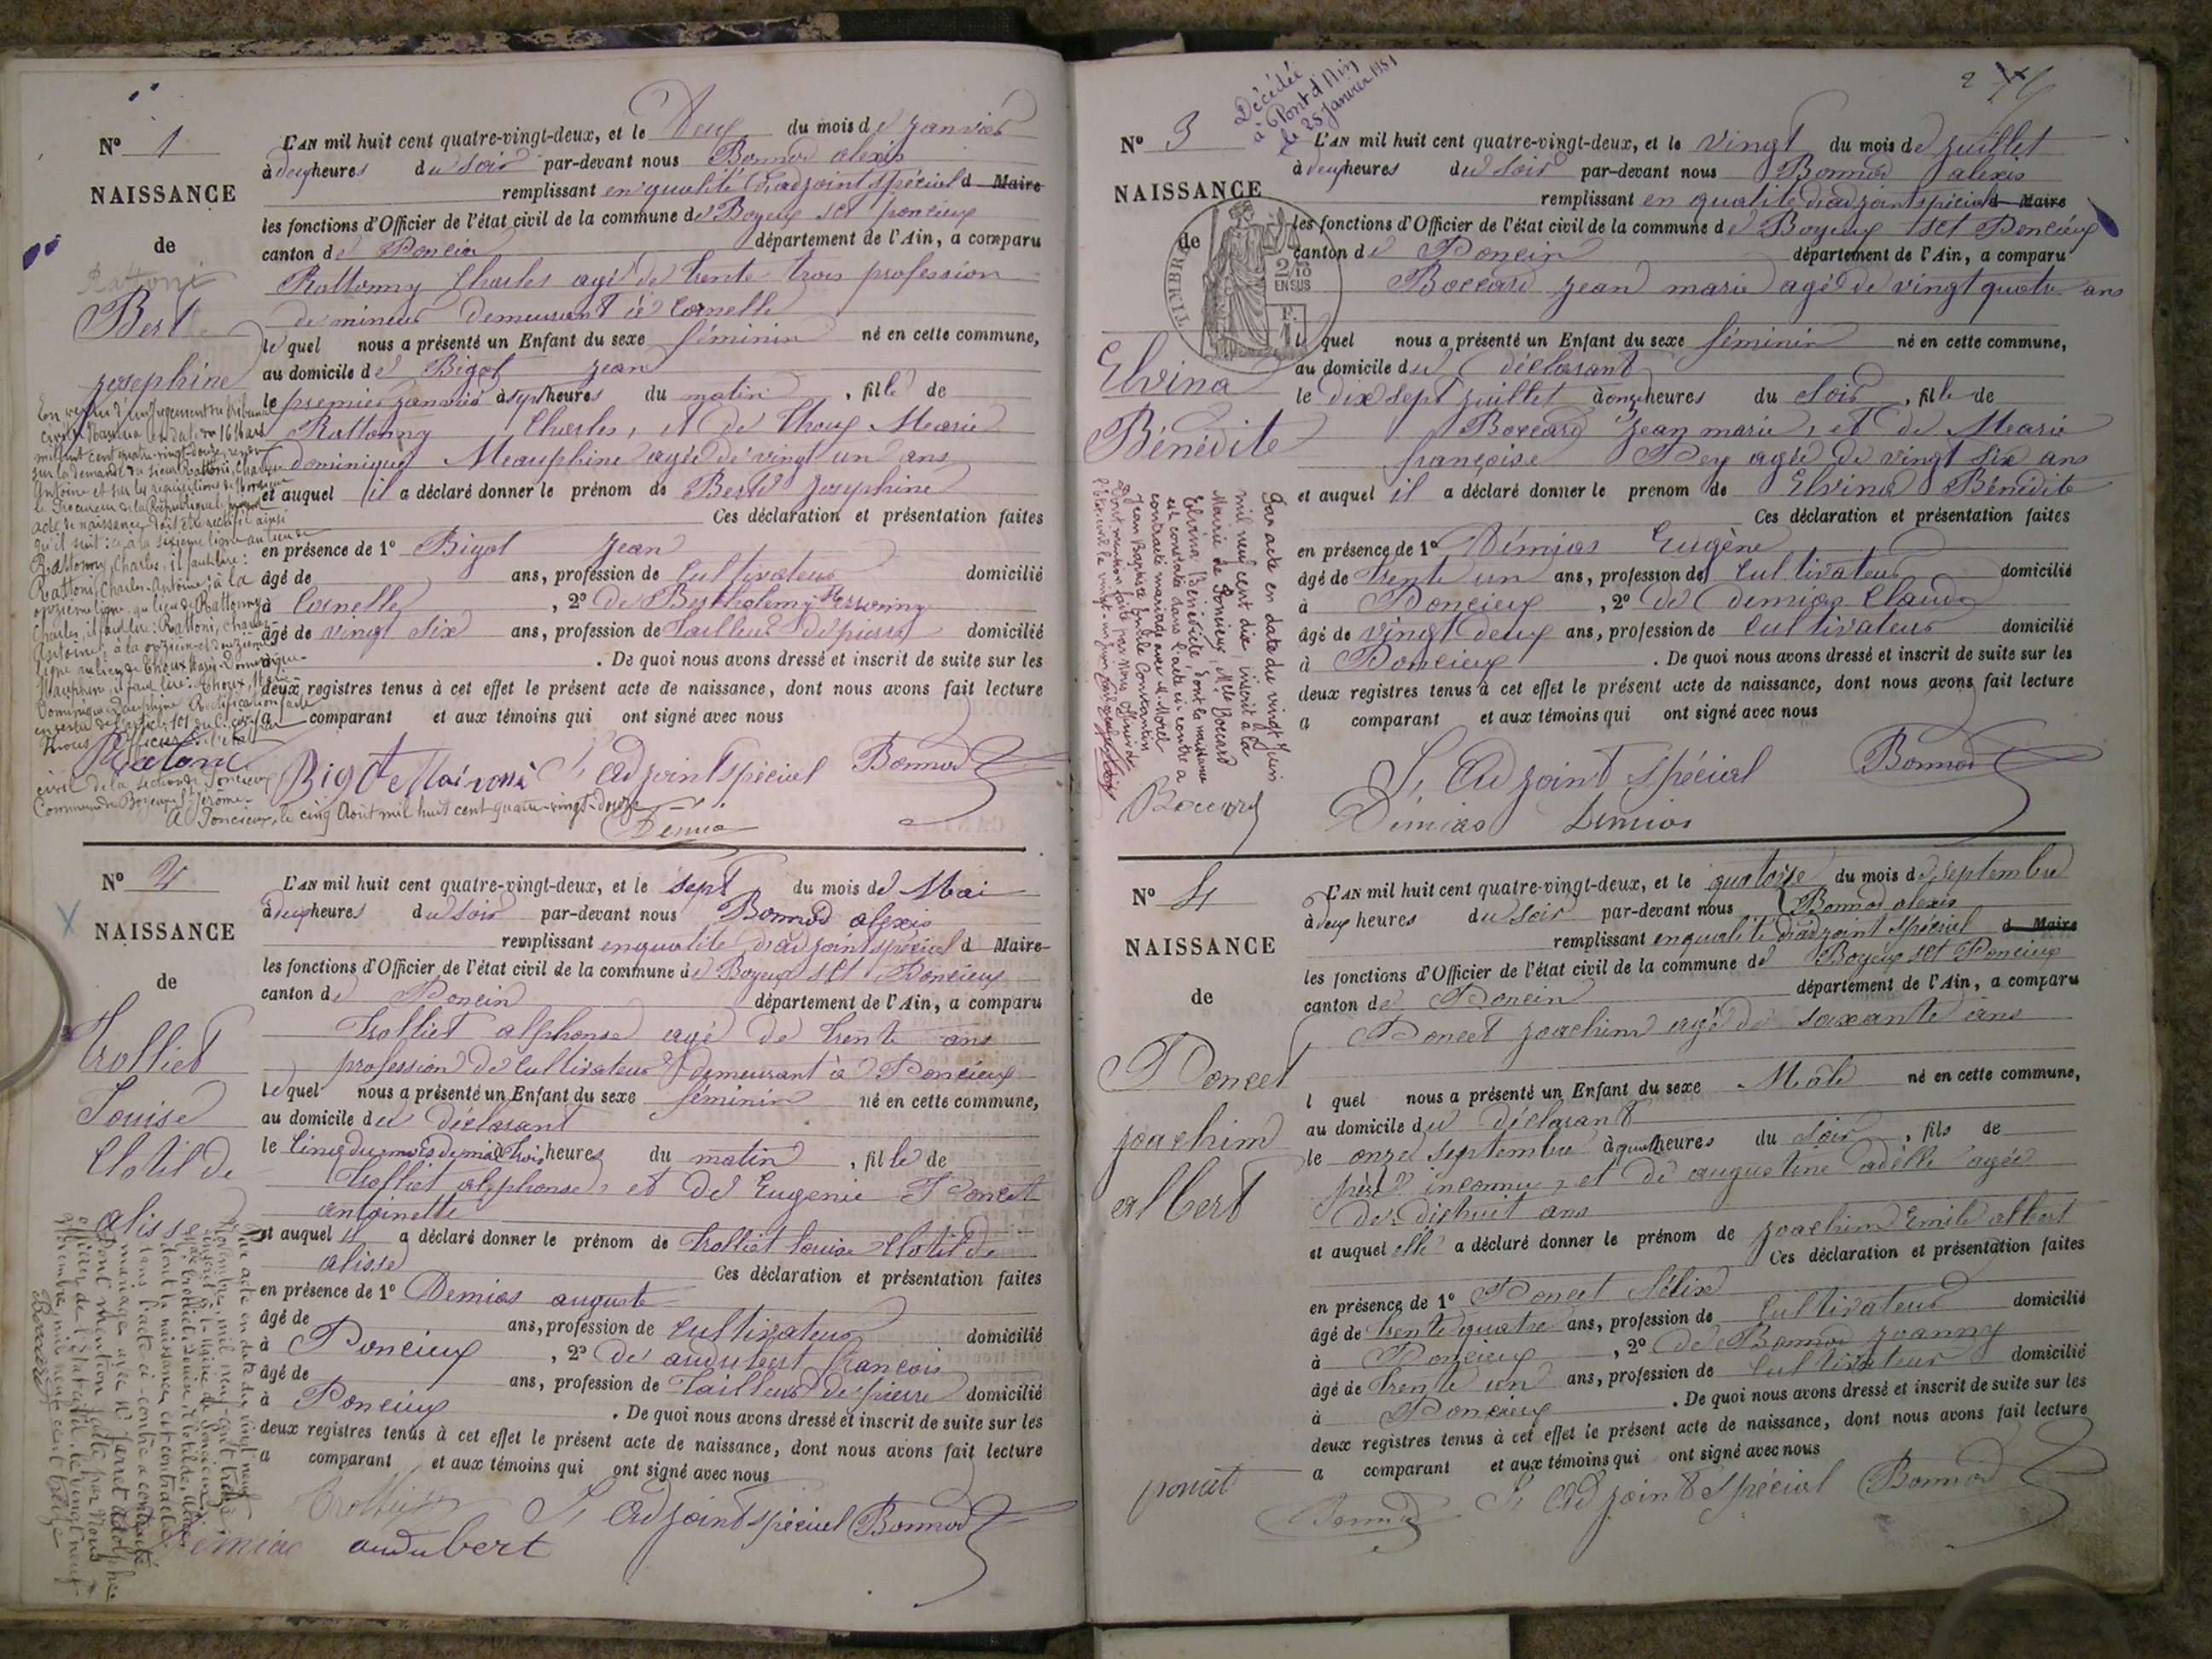 N° 1
NAISSANCE
de
Rattoni
Bert
josephine
L'AN mil huit cent quatre-vingt-deux, et le Deux du mois de janvier
à deux heures du soir par-devant nous Bonnod alexis
remplissant en qualité d'adjoint spécial d Maire
les fonctions d'Officier de l'état civil de la commune de Boyeux sct poncieux
canton de Poncin département de l'Ain, a comparu
Rattonny Charles agé de trente trois profession
de mineur demeurant à Cornelle
le quel nous a présenté un Enfant du sexe féminin né en cette commune,
au domicile de Bigot jean
le premier janvier à sept heures du matin, fille de
Rattonny Charles, et de Thoux Marie
dominique Mauphine agée de vingt un ans
et auquel il a déclaré donner le prénom de Berte josephine
Ces déclaration et présentation faites
en présence de 1° Bigot jean
âgé de ans, profession de Cultivateur domicilié
à Cornelle, 2° de Bertholemy
âgé de vingt six ans, profession de tailleur de pierre domicilié
à . De quoi nous avons dressé et inscrit de suite sur les
deux registres tenus à cet effet le présent acte de naissance, dont nous avons fait lecture
a comparant et aux témoins qui ont signé avec nous
En vertu d'un jugement du tribunal
civil de Nantua en date du 16 Mars
mil huit cent quatre-vingt-douze, rendu
sur la demande du sieur Rattoni, Charles
Antoine et sur les requisitions de Monsieur
le Procureur de la République,
acte de naissance doit être rectifié ainsi
qu'il suit: à la sixième ligne au lieu de
Rattonny, Charles, il faut lire:
Rattoni, Charles-Antoine; à la
onzième ligne au lieu de Rattonny
Charles, il faut lire: Rattoni, Charles-
Antoine; à la onzième et douzième
ligne au lieu de Thoux Marie-Dominique-
Mauphine, il faut lire: Thoux, Marie-
Dominique Dauphine. Rectification faite
en vertu de l'article 101 du C. civ. par
Nous Officier de l'état
civil de la section de Poncieux
Commune de Boyeux-St-Jérôme.
A Poncieux, le cinq Août mil huit cent quatre-vingt-douze
Ratoni Bigot L'adjoint spécial Bonnod
N° 2
NAISSANCE
de
Trolliet
Louise
Clotilde
alisse
L'AN mil huit cent quatre-vingt-deux, et le sept du mois de Mai
à deux heures du soir par-devant nous Bonnod alexis
remplissant en qualité d'adjoint spécial d Maire
les fonctions d'Officier de l'état civil de la commune de Boyeux sct Poncieux
canton de Poncin département de l'Ain, a comparu
Trolliet alphonse agé de trente ans
profession de Cultivateur demeurant à Poncieux
le quel nous a présenté un Enfant du sexe féminin né en cette commune,
au domicile du déclarant
le Cinq du mois de mai à trois heures du matin, fille de
Trolliet alphonse, et de Eugenie Poncet
antoinette
et auquel il a déclaré donner le prénom de Trolliet louise Clotilde
alisse Ces déclaration et présentation faites
en présence de 1° Demias auguste
âgé de ans, profession de Cultivateur domicilié
à Poncieux, 2° de audubert françois
âgé de ans, profession de tailleur de pierre domicilié
à Poncieux . De quoi nous avons dressé et inscrit de suite sur les
deux registres tenus à cet effet le présent acte de naissance, dont nous avons fait lecture
a comparant et aux témoins qui ont signé avec nous
Par acte en date du vingt neuf
Novembre mil neuf cent treize
inscrit à la Mairie de Poncieux
Trolliet Louise, Clotilde, Alisse
dont la naissance est constatée
dans l'acte ci-contre a contracté
mariage avec Mr Jarret Adolphe.
Dont mention faite par Nous
officier de l'Etat civil, le vingt neuf
Novembre mil neuf cent treize
Trolliet L'adjoint spécial Bonnod
audubert
2
Décédée
à Pont d'Ain
le 25 Janvier 1951
N° 3
NAISSANCE
de
TIMBRE
2/10
EN SUS
Elvina
Bénédite
L'AN mil huit cent quatre-vingt-deux, et le vingt du mois de juillet
à deux heures du soir par-devant nous Bonnod alexis
remplissant en qualité d'adjoint spécial d Maire
les fonctions d'Officier de l'état civil de la commune de Boyeux sct Poncieux
canton de Poncin département de l'Ain, a comparu
Boccard jean marie agé de vingt quatre ans
le quel nous a présenté un Enfant du sexe féminin né en cette commune,
au domicile du déclarant
le dix sept juillet à onze heures du soir, fille de
Boccard jean marie, et de Marie
françoise Pey agée de vingt six ans
et auquel il a déclaré donner le prenom de Elvina Bénédite
Ces déclaration et présentation faites
en présence de 1° Démias Eugène
âgé de trente un ans, profession de Cultivateur domicilié
à Poncieux, 2° de demias Claude
âgé de vingt deux ans, profession de Cultivateur domicilié
à Poncieux . De quoi nous avons dressé et inscrit de suite sur les
deux registres tenus à cet effet le présent acte de naissance, dont nous avons fait lecture
a comparant et aux témoins qui ont signé avec nous
Par acte en date du vingt Juin
mil neuf cent dix inscrit à la
Mairie de Poncieux, Melle Boccard
Elvina Bénédite, dont la naissance
est constatée dans l'acte ci-contre a
contracté mariage avec M. Morel
Jean Baptiste Emile Constantin
Dont mention faite par Nous Officier de
l'état civil le vingt-un Juin
Boccard
L'adjoint spécial Bonnod
Démias Demias
N° 4
NAISSANCE
de
Poncet
joachim
albert
L'AN mil huit cent quatre-vingt-deux, et le quatorze du mois de septembre
à deux heures du soir par-devant nous Bonnod alexis
remplissant en qualité d'adjoint spécial d Maire
les fonctions d'Officier de l'état civil de la commune de Boyeux sct Poncieux
canton de Poncin département de l'Ain, a comparu
Poncet joachim agé de soixante ans
l quel nous a présenté un Enfant du sexe Mâle né en cette commune,
au domicile du déclarant
le onze septembre à quatre heures du soir, fils de
père inconnu, et de augustine adèlle agée
de dixhuit ans
et auquel elle a déclaré donner le prénom de joachim Emile albert
Ces déclaration et présentation faites
en présence de 1° Poncet félix
âgé de trente quatre ans, profession de Cultivateur domicilié
à Poncieux, 2° de Bonnod joanny
âgé de trente un ans, profession de Cultivateur domicilié
à Poncieux . De quoi nous avons dressé et inscrit de suite sur les
deux registres tenus à cet effet le présent acte de naissance, dont nous avons fait lecture
a comparant et aux témoins qui ont signé avec nous
poncet
Bonnod L'adjoint spécial Bonnod